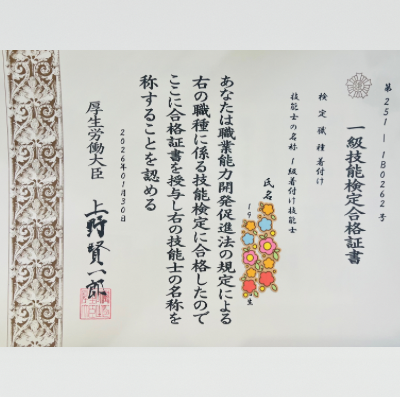 第251-1B0262号
一級技能検定合格証書
検定職種 着付け
技能士の名称 1級着付け技能士
氏名
19
生
あなたは職業能力開発促進法の規定による
右の職種に係る技能検定に合格したので
ここに合格証書を授与し右の技能士の名称を
称することを認める
2026年01月30日
厚生労働大臣 上野賢一郎